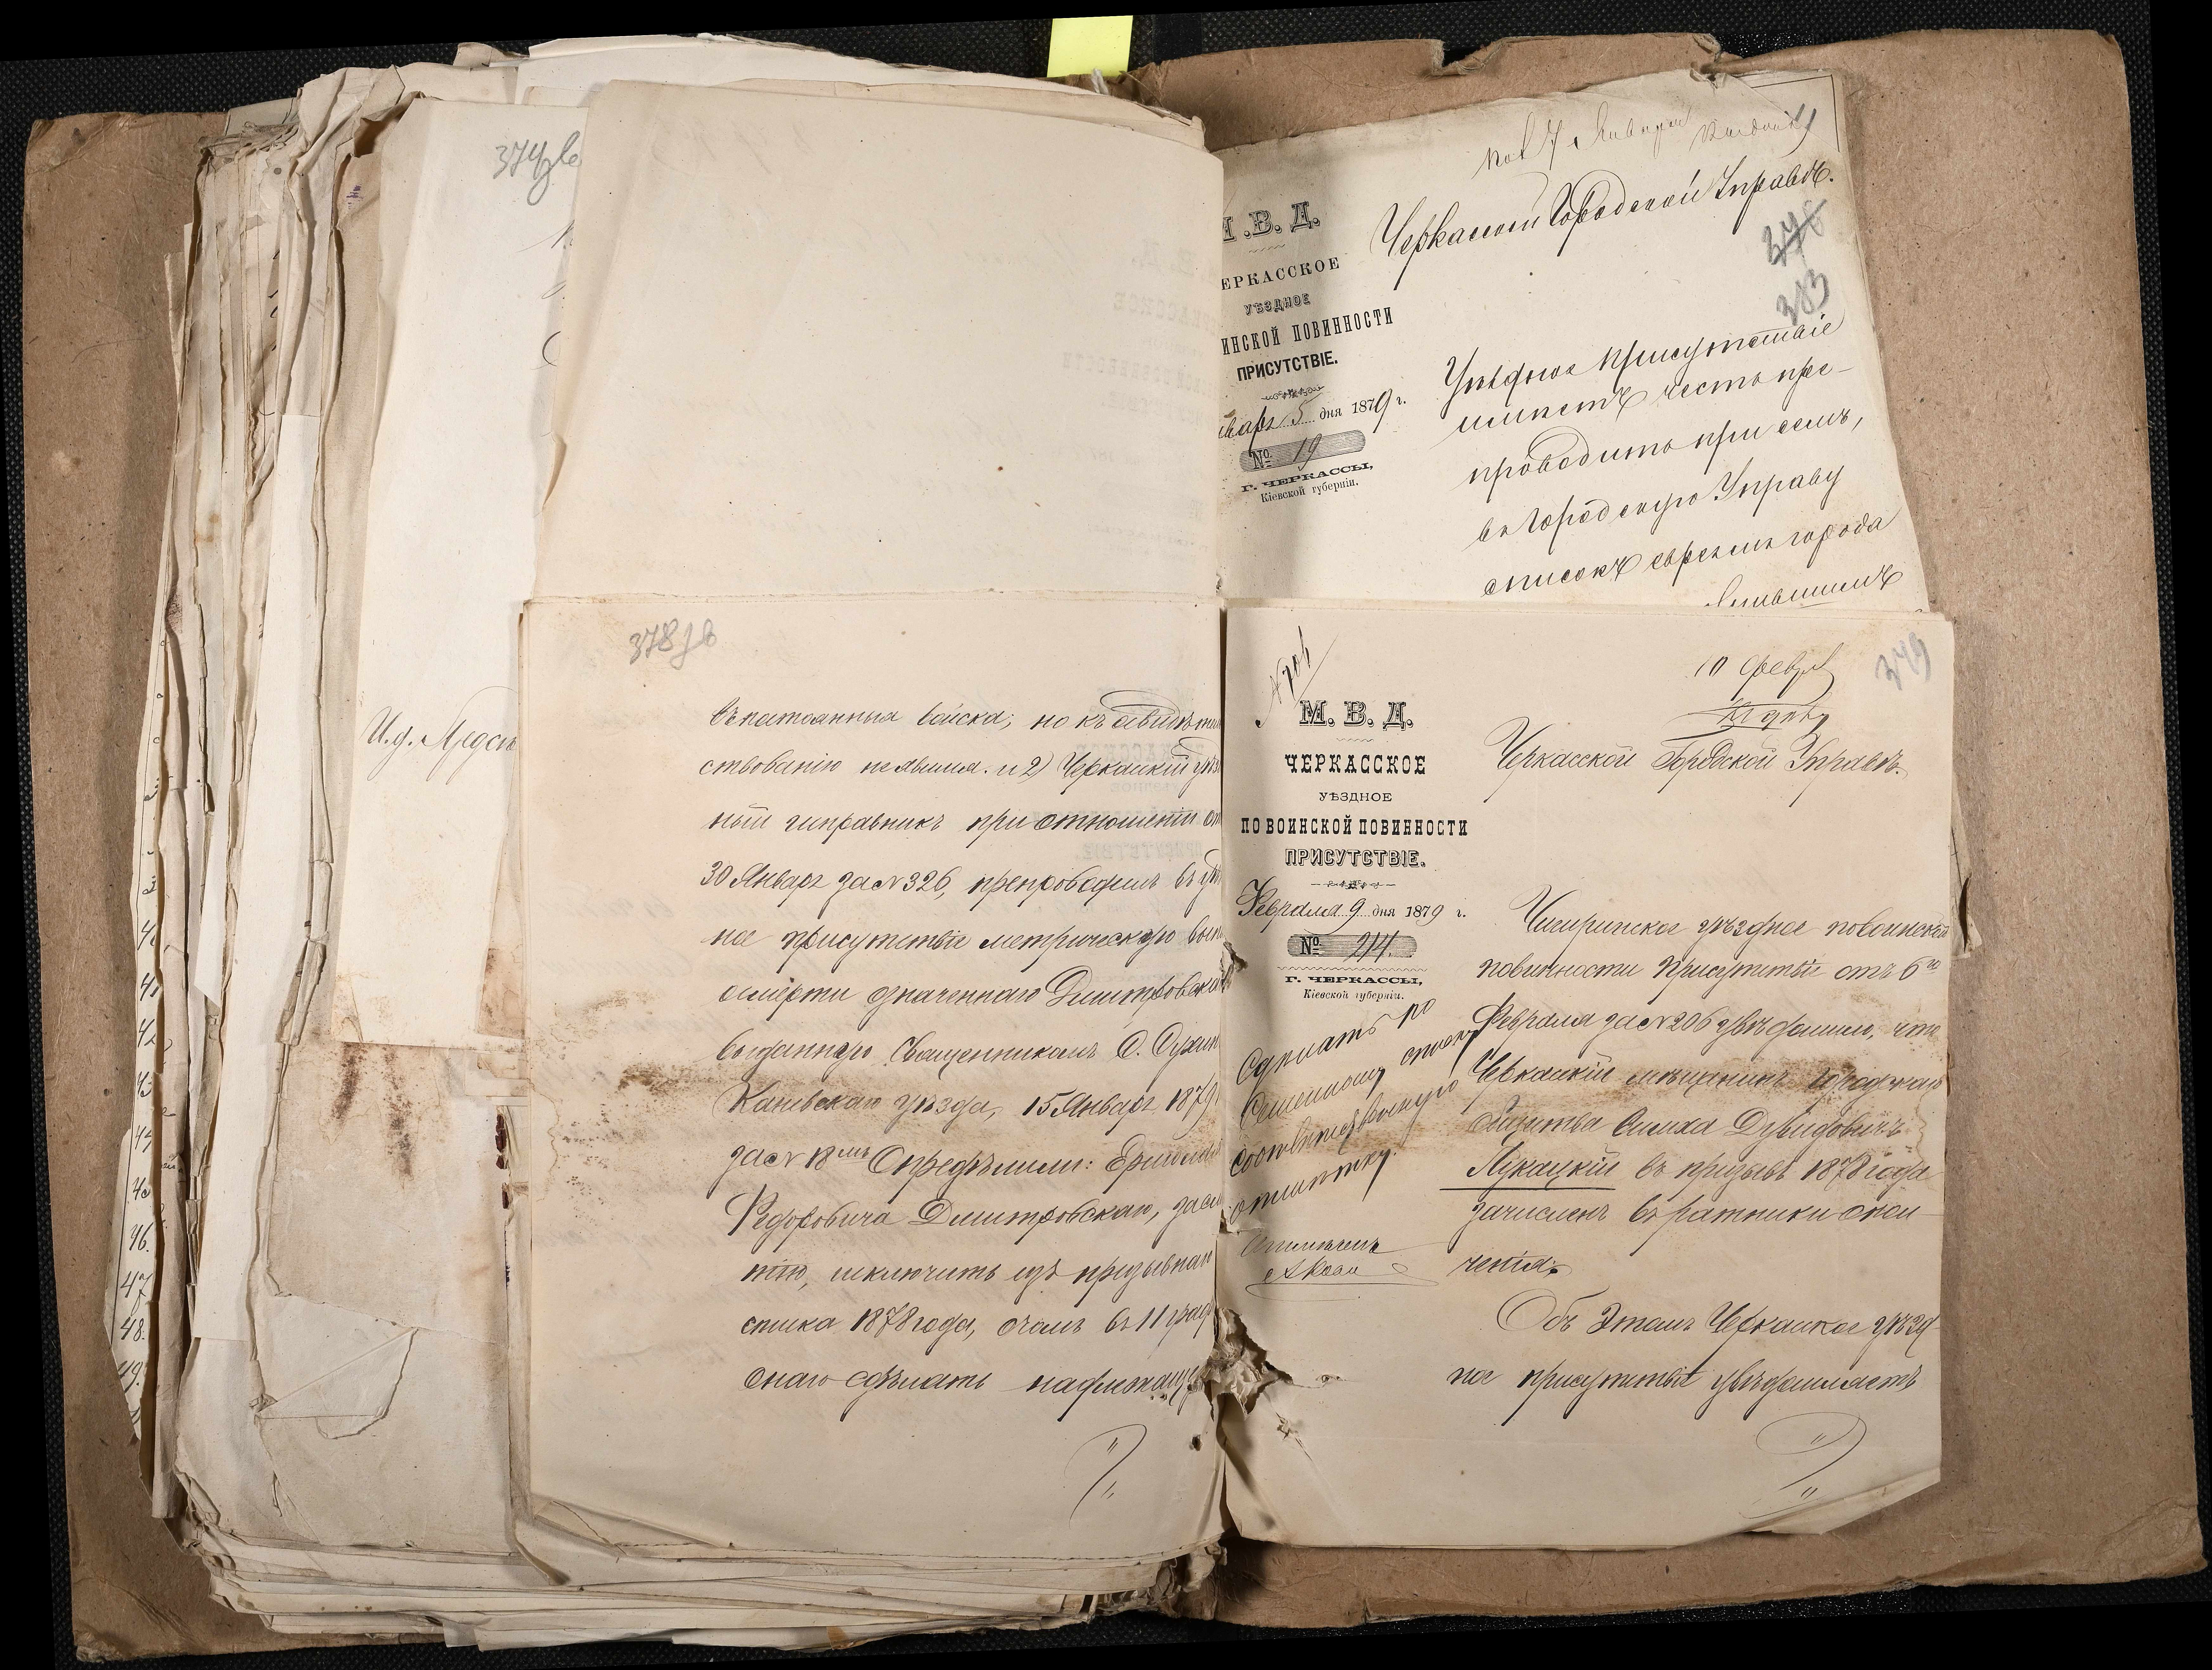 374 об
И.д. Предсѣ
М.В.Д.
ЕРКАССКОЕ
УѢЗДНОЕ
ИНСКОЙ ПОВИННОСТИ
ПРИСУТСТВІЕ.
нваря 5 дня 1879 г.
№ 19
Г. ЧЕРКАССЫ,
Кіевской губерніи.
Черкасской Городской Управѣ.
383
Уѣздное Присутствіе
имѣетъ честь пре-
проводить при семъ,
въ Городскую Управу
списокъ евреямъ города
378 об
въ постоянныя войска, но къ освидѣтель
ствованію не явился. и 2) Черкасскій уѣзд
ный исправникъ при отношеніи отъ
30 Января за № 326, препроводилъ въ уѣзд
ное присутствіе метрическую выпись
о смерти означеннаго Димитровскаго
выданную Священникомъ С.
Каневскаго уѣзда, 15 Января 1879
за № 18мъ Опредѣлили:
Федоровича Димитровскаго, за см
тію, исключить изъ призывнаго
списка 1878 года, о чемъ въ 11 граф
онаго сдѣлать надлежащую
379
10 февр
М. В. Д.
ЧЕРКАССКОЕ
УѢЗДНОЕ
ПО ВОИНСКОЙ ПОВИННОСТИ
ПРИСУТСТВІЕ.
Февраля 9 дня 1879 г.
№ 214.
Г. ЧЕРКАССЫ,
Кіевской губерніи.
Сдѣлать по
семейному списку
соотвѣтственную
отмѣтку.
Черкасской Городской Управѣ.
Чигиринское уѣздное по воинской
повинности Присутствіе отъ 6го
Февраля за № 206 увѣдомило, что
Черкасскій мѣщанинъ городскаго
общества Симха Дувидовичъ
Лукацкій въ призывъ 1878 года
зачисленъ въ ратники опол-
ченія.
Объ этомъ Черкасское уѣзд-
ное присутствіе увѣдомляетъ